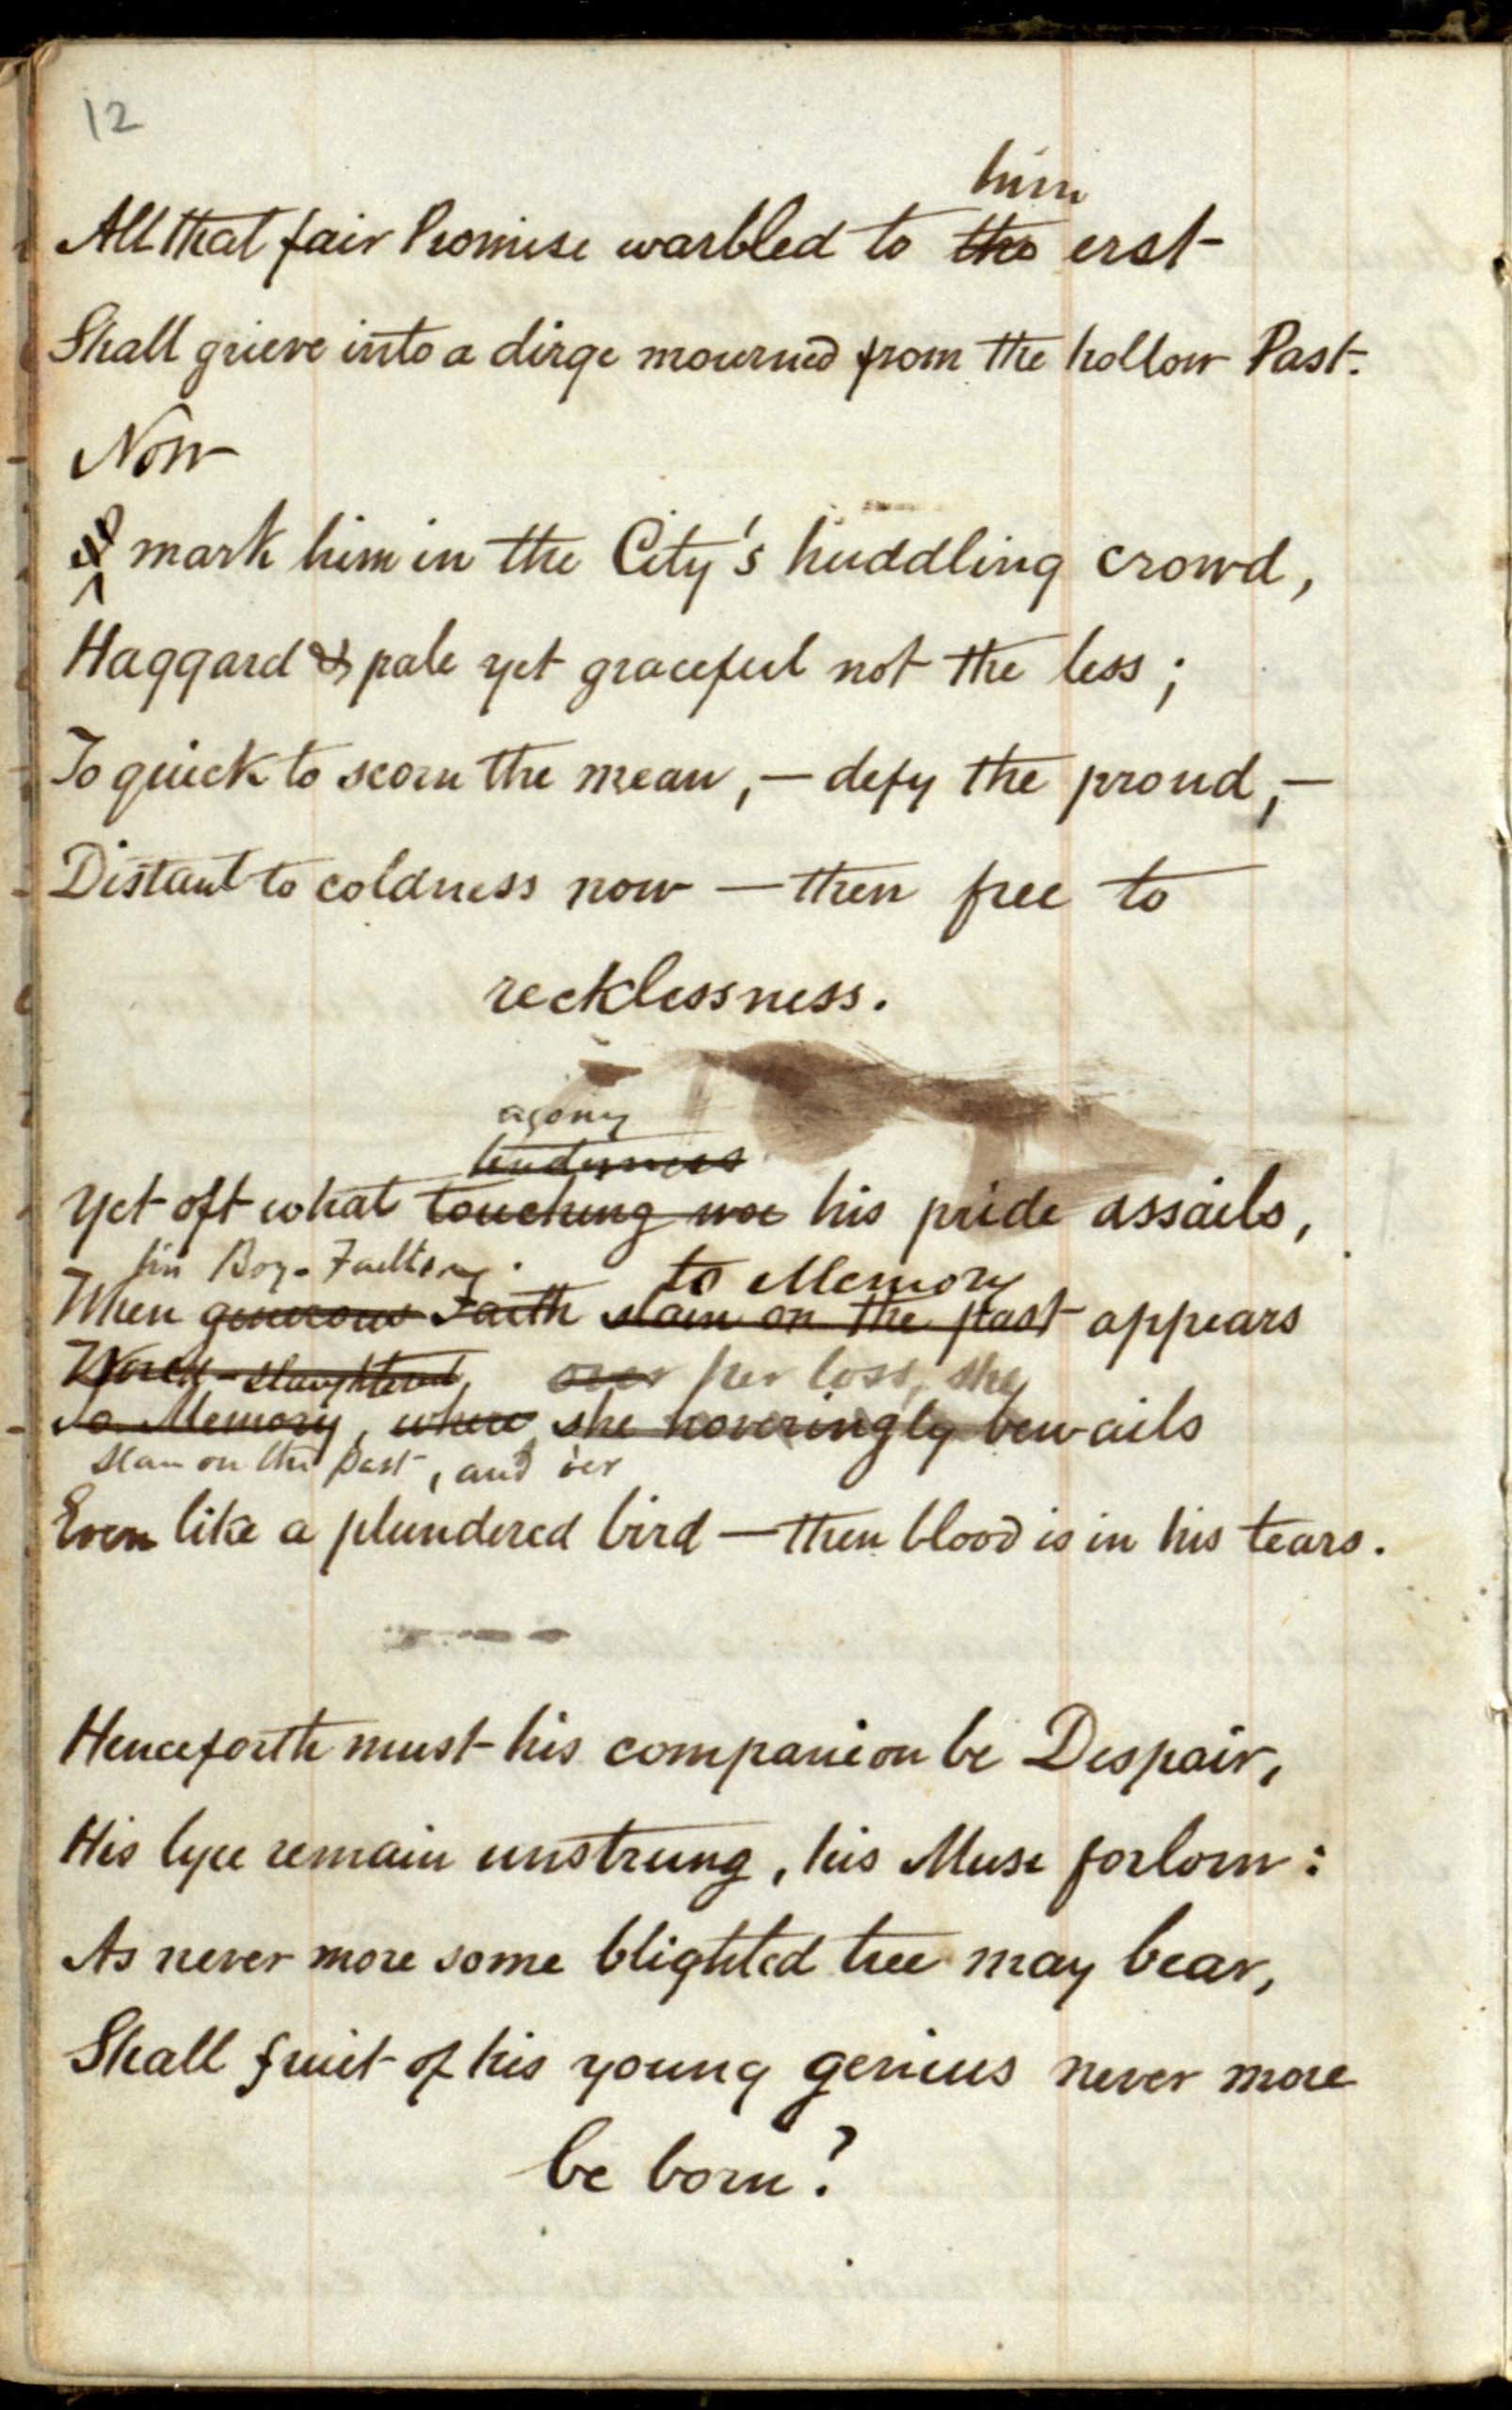 12
him
All that fair Promise warbled to erst
Shall grieve into a dirge mourned from the hollow Past.
Now
mark him in the City's huddling crowd,
Haggard & pale yet graceful not the less;
To quick to scorn the mean,— defy the proud,—
Distant to coldness now — then free to
recklessness.
agony
tenderness
Yet oft what touching woe his pride assails,
his Boy-
to Memory
When generous Faith slain on the past appears
slaughtered, over her loss, she
To Memory, where she hoveringly bewails
slain on the Past, and o'er
Even like a plundered bird — then blood is in his tears.
Henceforth must his companion be Despair,
His lyre remain unstrung, his Muse forlorn:
As never more some blighted tree may bear,
Shall fruit of his young genius never more
be born?